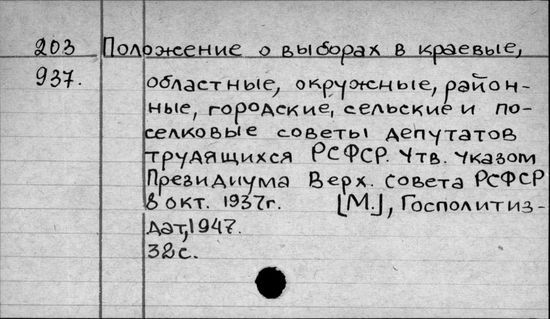 203 Положение о выборах в краевые,
937. областные, окружные, район-
ные, городские, сельские и по-
селковые советы депутатов
трудящихся РСФСР. Утв. Указом
Президиума Верх. Совета РСФСР
8 окт. 1937г. [М.], Госполитиз-
дат, 1947.
32с.